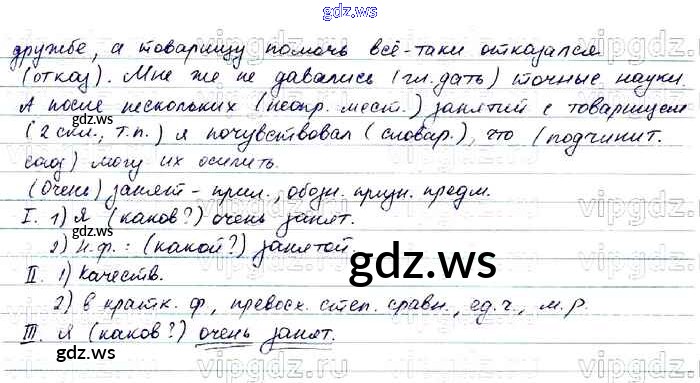 gdz.ws
дружбе, а товарищу помочь всё-таки отказался
(отказ). Мне же не давались (гл. дать) точные науки.
А после нескольких (неопр. мест.) занятий с товарищем
(2 скл., т.п.) я почувствовал (словар.), что (подчинит.
союз) могу их осилить.
(Очень) занят - прил., обозн. призн. предм.
I. 1) Я (каков?) очень занят.
2) Н.ф.: (какой?) занятой.
II. 1) Качеств.
2) в кратк. ф, превосх. степ. сравн., ед.ч., м.р.
III. Я (каков?) очень занят.
gdz.ws
gdz.ws
gdz.ws
gdz.ws
gdz.ws
vipgdz.ru